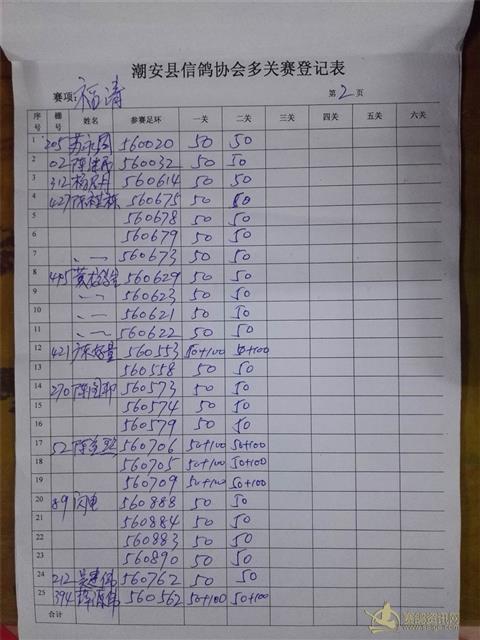 潮安县信鸽协会多关赛登记表
赛项: 福清 第2页
序号 棚号 姓名 参赛足环 一关 二关 三关 四关 五关 六关
1 205 560020 50 50
2 02 560032 50 50
3 312 560614 50 50
4 427 560675 50 50
5 560678 50 50
6 560679 50 50
7 560673 50 50
8 495 560629 50 50
9 560623 50 50
10 560621 50 50
11 560622 50 50
12 421 560553 50+100 50+100
13 560558 50 50
14 270 560573 50 50
15 560574 50 50
16 560579 50 50
17 52 560706 50+100 50+100
18 560705 50+100 50+100
19 560709 50+100 50+100
20 89 闪电 560888 50 50
21 560884 50 50
22 560883 50 50
23 560890 50 50
24 212 吴建伟 560762 50 50
25 394 560562 50+100 50+100
合计
赛鸽资讯网